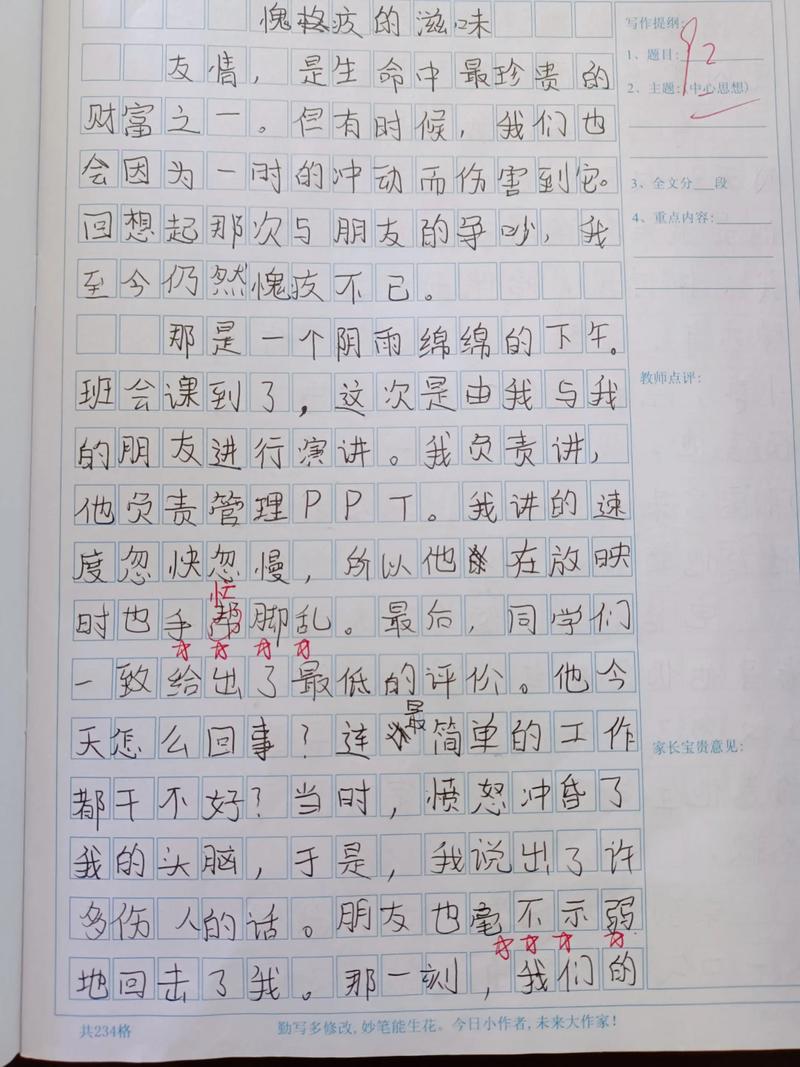 愧疚疚的滋味
写作提纲:
92
1、题目:
2、主题:(中心思想)
3、全文分 段
4、重点内容:
教师点评:
家长宝贵意见:
友情，是生命中最珍贵的
财富之一。但有时候，我们也
会因为一时的冲动而伤害到它。
回想起那次与朋友的争吵，我
至今仍然愧疚不已。
那是一个阴雨绵绵的下午。
班会课到了，这次是由我与我
的朋友进行演讲。我负责讲，
他负责管理PPT。我讲的速
度忽快忽慢，所以他在放映
忙
时也手帮脚乱。最后，同学们
一致给出了最低的评价。他今
天怎么回事？连最简单的工作
都干不好？当时，愤怒冲昏了
我的头脑，于是，我说出了许
多伤人的话。朋友也毫不示弱
地回击了我。那一刻，我们的
共234格
勤写多修改,妙笔能生花。今日小作者,未来大作家!